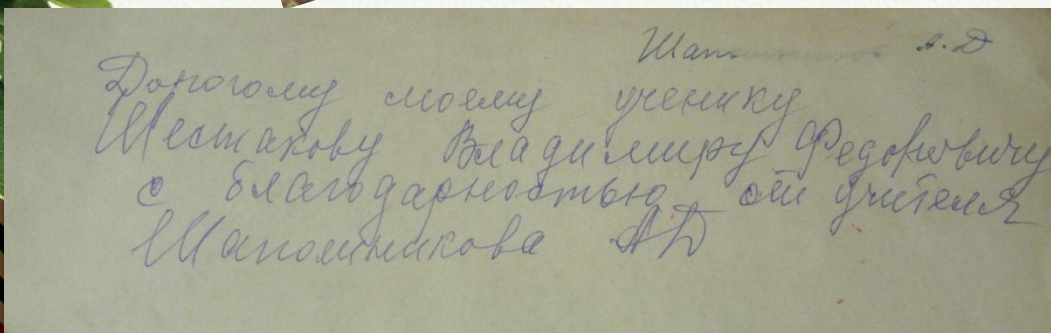 А.Д
Дорогому моему ученику
Шестакову Владимиру Федоровичу
с благодарностью от учителя
Шапошникова АД